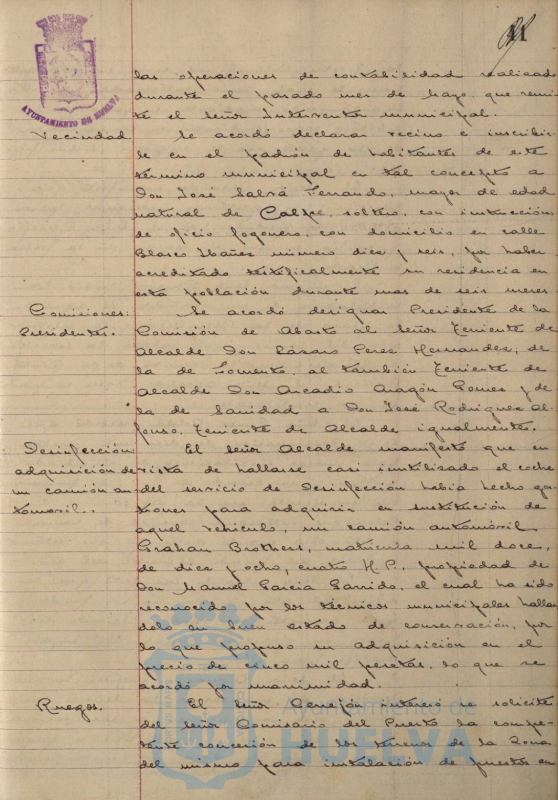 11
AYUNTAMIENTO DE HUELVA
las operaciones de contabilidad realizadas
durante el pasado mes de Mayo, que remi-
te el Señor Interventor municipal.
Vecindad.
Se acordó declarar vecino e inscribir-
le en el padrón de habitantes de este
término municipal en tal concepto a
Don José Salvá Ferrando, mayor de edad
natural de Calpe, soltero, con instrucción
de oficio fogonero, con domicilio en calle
Blasco Ibáñez número diez y seis, por haber
acreditado testificalmente su residencia en
esta población durante mas de seis meses.
Comisiones:
Presidentes.
Se acordó designar Presidente de la
Comisión de Abasto al Señor Teniente de
Alcalde Don Lázaro Perez Hernandez, de
la de Fomento, al también Teniente de
Alcalde Don Arcadio Aragón Gomez y de
la de Sanidad a Don José Rodriguez Al-
fonso, Teniente de Alcalde igualmente.
Desinfección
adquisición de
un camión au-
tomovil.
El Señor Alcalde manifestó que en
vista de hallarse casi inutilizado el coche
del servicio de Desinfección había hecho ges-
tiones para adquirir en sustitución de
aquel vehiculo, un camión automóvil
Grahan Brothers, matricula mil doce,
de diez y ocho, cuatro H.P., propiedad de
Don Manuel Garcia Garrido, el cual ha sido
reconocido por los técnicos municipales hallan
dolo en buen estado de conservación, por
lo que propuso su adquisición en el
precio de cinco mil pesetas, lo que se
acordó por unanimidad.
Ruegos.
El Señor Cerejón interesó se solicite
del Señor Comisario del Puerto la compe-
tente concesión de los terrenos de la Zona
del mismo para instalación de puestos en
Ayuntamiento de
HUELVA